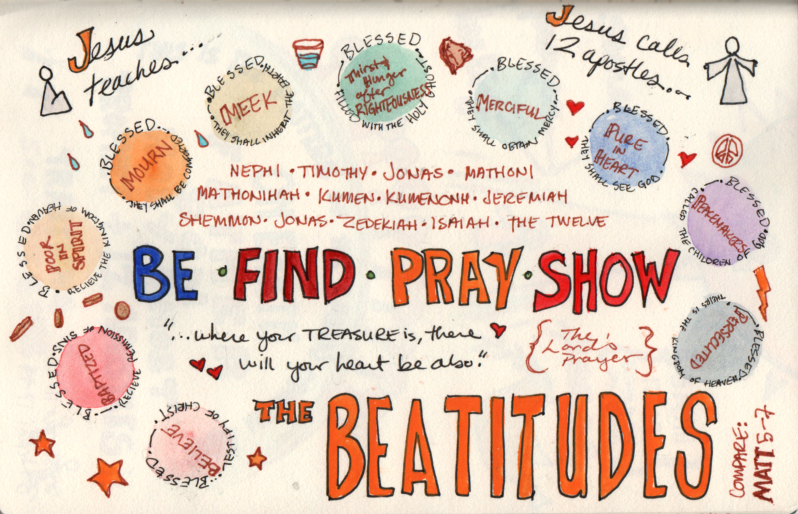 Jesus
teaches...
Jesus calls
12 apostles...
BLESSED
MEEK
THEY SHALL INHERIT THE EARTH
BLESSED
Thirst & Hunger after RIGHTEOUSNESS
FILLED WITH THE HOLY GHOST
BLESSED
MERCIFUL
THEY SHALL OBTAIN MERCY
BLESSED
PURE IN HEART
THEY SHALL SEE GOD
BLESSED
MOURN
THEY SHALL BE COMFORTED
BLESSED
POOR IN SPIRIT
KINGDOM OF HEAVEN
BLESSED
PEACEMAKERS
CALLED THE CHILDREN OF GOD
NEPHI · TIMOTHY · JONAS · MATHONI
MATHONIHAH · KUMEN · KUMENONHI · JEREMIAH
SHEMNON · JONAS · ZEDEKIAH · ISAIAH · THE TWELVE
BE · FIND · PRAY · SHOW
"...where your TREASURE is, there
will your heart be also."
{The Lord's Prayer}
BLESSED
PERSECUTED
THEIRS IS THE KINGDOM OF HEAVEN
BLESSED
BAPTIZED
REMISSION OF SINS
BLESSED
BELIEVE
TESTIFY OF CHRIST
THE BEATITUDES
COMPARE:
MATT 5-7